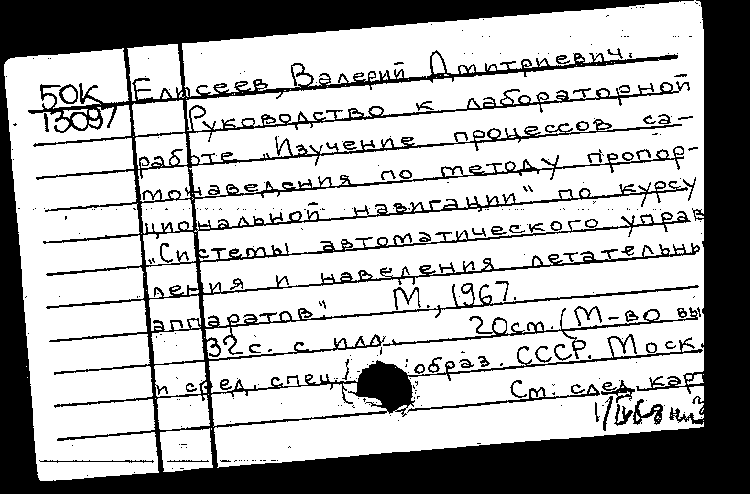 50К Елисеев, Валерий Дмитриевич.
13097 Руководство к лабораторной
работе „Изучение процессов са-
монаведения по методу пропор-
циональной навигации" по курсу
„Системы автоматического управ
ления и наведения летательны
аппаратов". М., 1967.
32с. с илл. 20см. (М-во вы
и сред. спец. образ. СССР. Моск.
См. след. карт